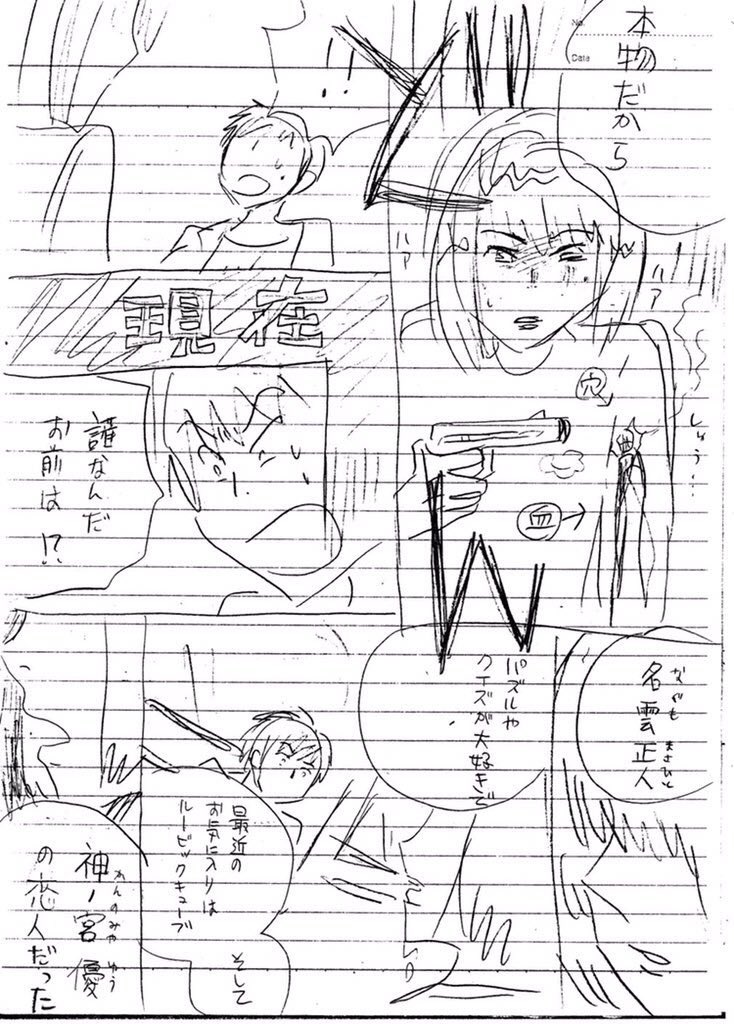 No.
Date
本物だから
ハァ
ハァ
穴
しゅう…
血
!!
現在
誰なんだ
お前は!?
名雲正人
なぐも
まさひと
パズルや
クイズが大好きで
最近の
お気に入りは
ルービックキューブ
そして
神ノ宮優
かんのみや
ゆう
の恋人だった